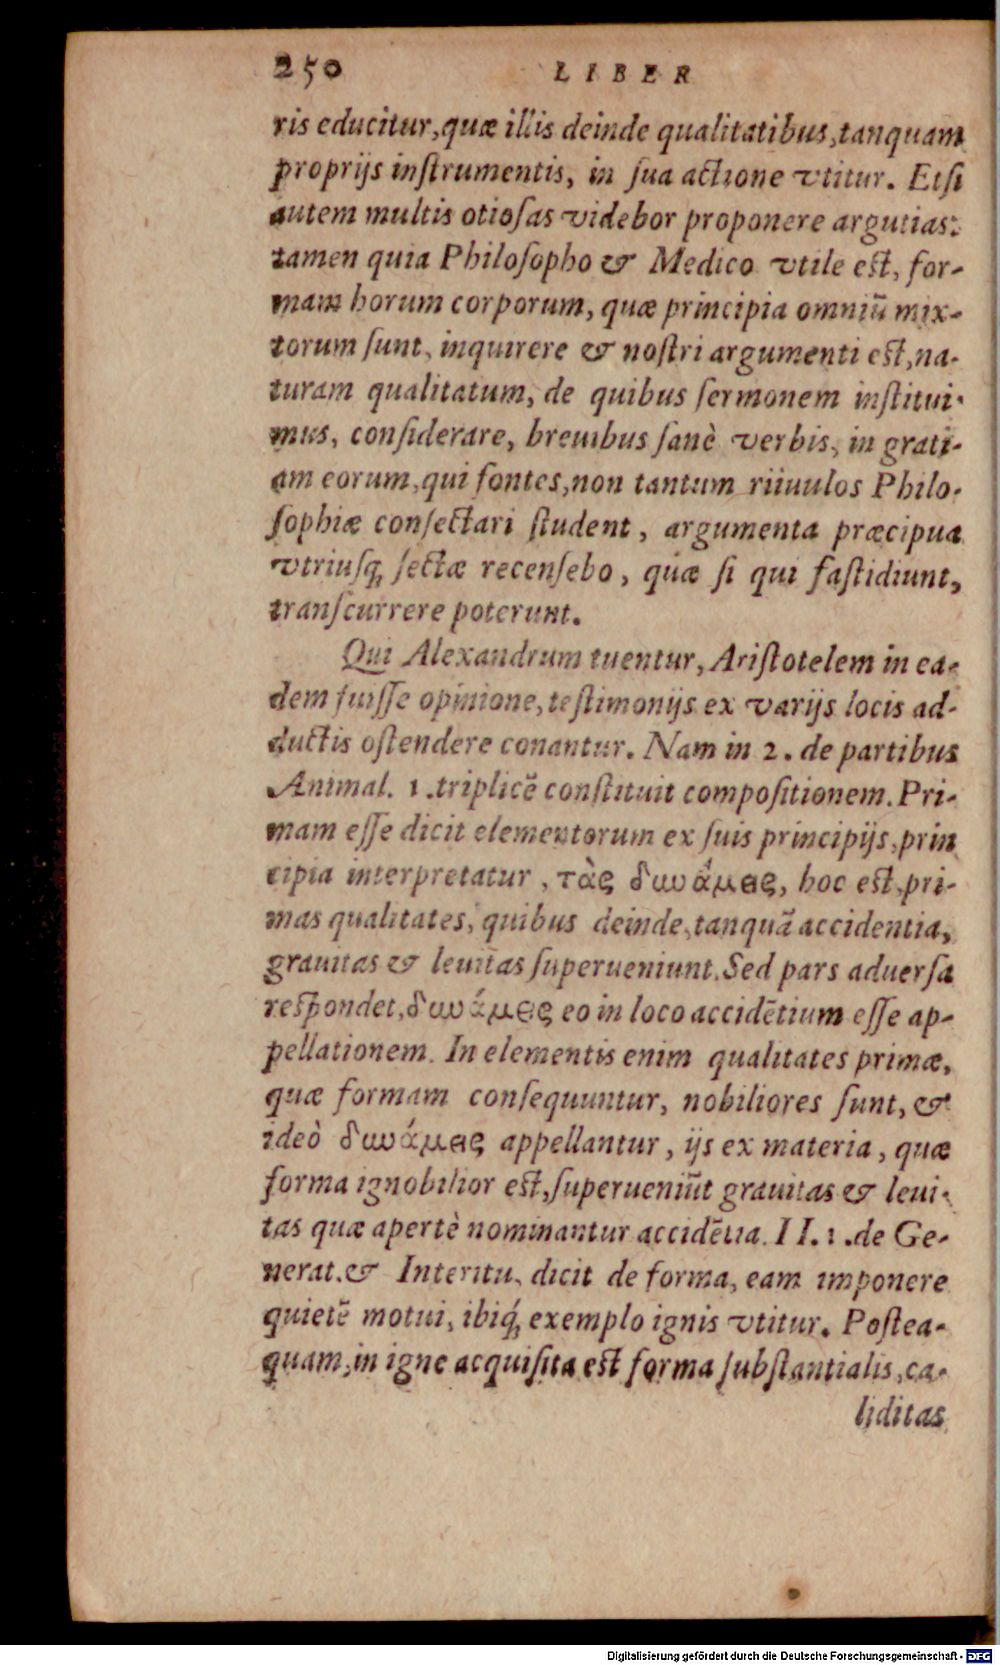 250 LIBER
ris educitur, quæ illis deinde qualitatibus, tanquam
proprijs inſtrumentis, in ſua actione vtitur. Etſi
autem multis otioſas videbor proponere argutias:
tamen quia Philoſopho & Medico vtile eſt, for-
mam horum corporum, quæ principia omniũ mix-
torum ſunt, inquirere & noſtri argumenti eſt, na-
turam qualitatum, de quibus ſermonem inſtitui-
mus, conſiderare, breuibus ſanè verbis, in grati-
am eorum, qui fontes, non tantum riiuulos Philo-
ſophiæ conſectari ſtudent, argumenta præcipua
vtriuſq́ ſectæ recenſebo, quæ ſi qui faſtidiunt,
tranſcurrere poterunt.
Qui Alexandrum tuentur, Ariſtotelem in ea-
dem fuiſſe opinione, teſtimonijs ex varijs locis ad-
ductis oſtendere conantur. Nam in 2. de partibus
Animal. 1. triplicẽ conſtituit compoſitionem. Pri-
mam eſſe dicit elementorum ex ſuis principijs, prin
cipia interpretatur, τὰς δυνάμεις, hoc eſt, pri-
mas qualitates, quibus deinde, tanquã accidentia,
grauitas & leuitas ſuperueniunt. Sed pars aduerſa
reſpondet, δυνάμεις eo in loco accidẽtium eſſe ap-
pellationem. In elementis enim qualitates primæ,
quæ formam conſequuntur, nobiliores ſunt, &
ideò δυνάμεις appellantur, ijs ex materia, quæ
forma ignobilior eſt, ſuperueniũt grauitas & leui-
tas quæ apertè nominantur accidẽtia. II. 1. de Ge-
nerat. & Interitu, dicit de forma, eam imponere
quietẽ motui, ibiq́ exemplo ignis vtitur. Poſtea-
quam, in igne acquiſita eſt forma ſubſtantialis, ca-
liditas
Digitalisierung gefördert durch die Deutsche Forschungsgemeinschaft - DFG